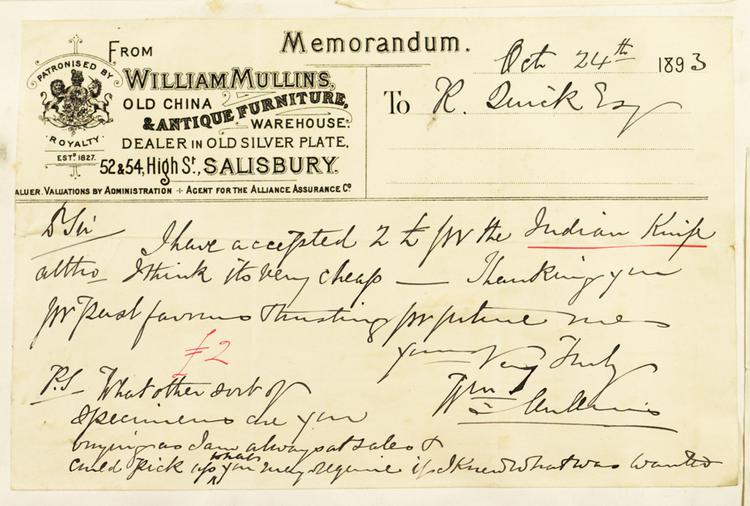 Memorandum.
FROM
PATRONISED BY
ROYALTY
ESTD 1827.
WILLIAM MULLINS,
OLD CHINA
& ANTIQUE FURNITURE,
WAREHOUSE:
DEALER IN OLD SILVER PLATE,
52 & 54, High St., SALISBURY.
ALUER. VALUATIONS BY ADMINISTRATION + AGENT FOR THE ALLIANCE ASSURANCE Co
Oct 24th 1893
To R. Quick Esq
Dr Sir
I have accepted 2 £ for the Indian Knife
altho I think its very cheap — Thanking you
for Past favours & trusting for future ones
yours Very Truly
Wm Mullins
£2
P.S — What other sort of
specimens are you
buying as I am always at sales &
could pick up whats you may require if I knew what was wanted